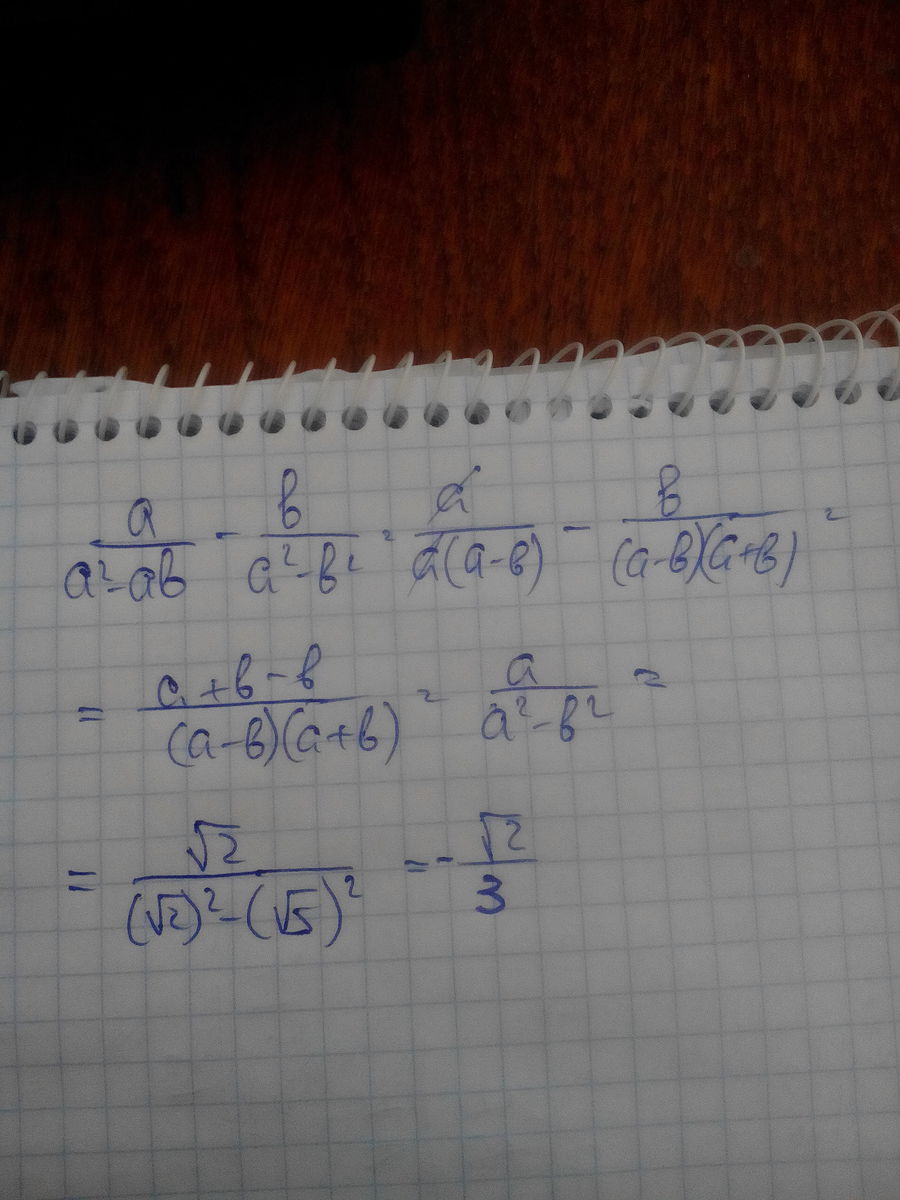 a/(a²-ab) - b/(a²-b²) = a/(a(a-b)) - b/((a-b)(a+b)) =
= (a+b-b)/((a-b)(a+b)) = a/(a²-b²) =
= √2/((√2)²-(√5)²) = -√2/3